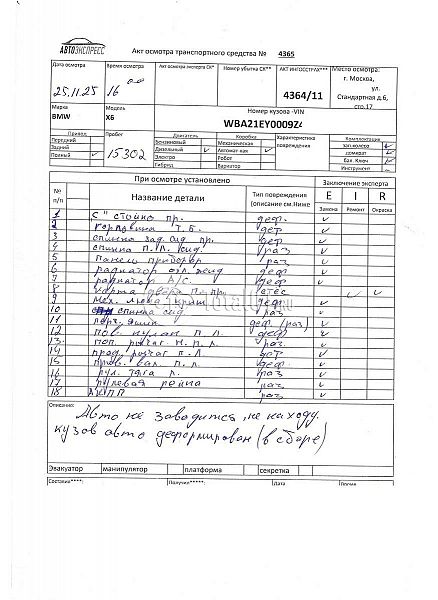 АВТОЭКСПРЕСС
Акт осмотра транспортного средства № 4365
Дата осмотра Время осмотра Акт осмотра эксперта СК* Номер убытка СК** АКТ ИНГОССТРАХ*** Место осмотра:
г. Москва,
ул.
Стандартная д.6,
стр.17
25.11.25 16 00 4364/11
Марка Модель Номер кузова -VIN
BMW X6 WBA21EY0009Z
Привод Пробег Двигатель Коробка Характеристика повреждения Комплектация
Передний Бензиновый Механическая зап.колесо
Задний Дизельный Автомат как домкрат
Полный 15302 Электро Робот бал. Ключ
Гибрид Вариатор Инструмент
При осмотре установлено Заключение эксперта
№ п/п Название детали Тип повреждения (описание см.Ниже E I R
Замена Ремонт Окраска
1 С" стойка пр. деф.
2 горловина Т.Б. деф
3 спинка зад. сид. пр. деф
4 спинка П.Л. сид. раз
5 панель приборов раз
6 радиатор охл. жид деф
7 радиатор А/С. деф
8 карта двери п.пр.
9 деф.
10 спинка сид раз
11 деф./раз
12 п.л. деф
13 поп. рычаг н. п.л. раз
14 прод. рычаг п.л деф
15 деф.
16 рул. тяга л. раз
17 рулевая рейка раз
18 АКПП раз
Описание:
Авто не заводится, не на ходу.
кузов авто деформирован (в сборе)
Эвакуатор манипулятор платформа секретка
Составил****: Получил****: Дата